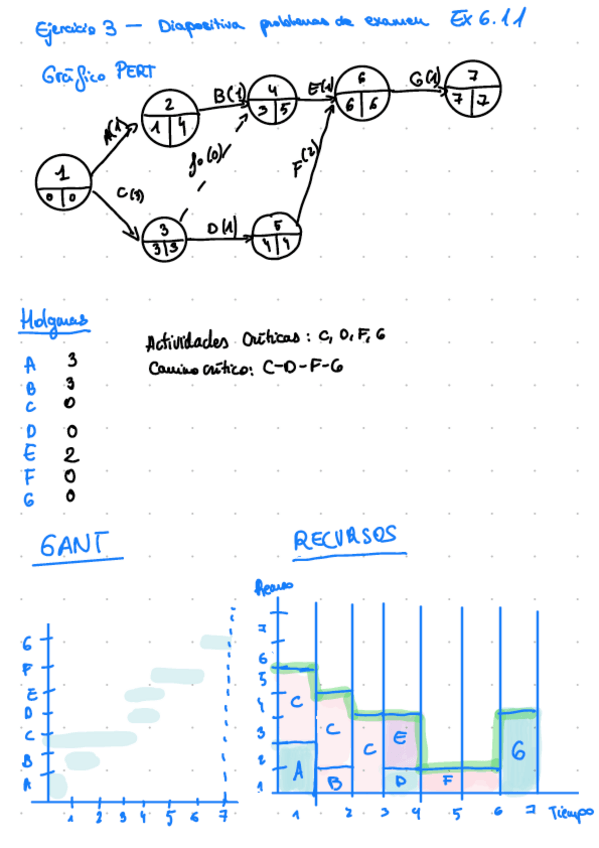 Ejercicio 3 — Diapositiva problemas de examen Ex 6.11
Gráfico PERT
1
0 0
A(1)
2
1 4
B(1)
4
3 5
E(1)
6
6 6
G(1)
7
7 7
C(3)
f0(0)
F(2)
3
3 3
D(1)
5
4 4
Holguras
A 3
B 3
C 0
D 0
E 2
F 0
G 0
Actividades Críticas: C, D, F, G
Camino crítico: C-D-F-G
GANT
G
F
E
D
C
B
A
1 2 3 4 5 6 7
RECURSOS
Recurso
7
6
5
4
3
2
1
C
A
C
B
C
E
D
F
G
1 2 3 4 5 6 7 Tiempo